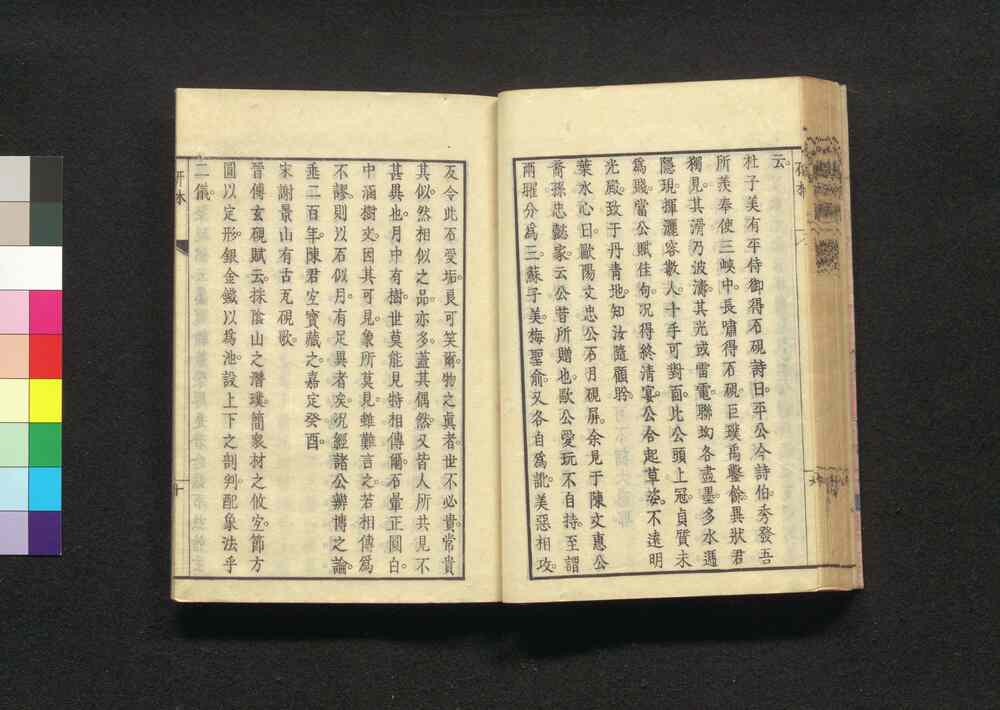 云。
杜子美有平侍御得石硯詩曰。平公今詩伯。秀發吾
所羨。奉使三峽中。長嘯得石硯。巨璞禹鑿餘。異狀君
獨見。其滑乃波濤。其光或雷電。聯坳各盡墨。多水遞
隱現。揮灑容數人。十手可對面。此公頭上冠。貞質未
為賤。當公賦佳句。況得終清宴。公含起草姿。不遠明
光殿。致于丹青地。知汝隨顧眄。
葉水心曰。歐陽文忠公石月硯屏。余見于陳文惠公
裔孫忠懿家。云公昔所贈也。歐公愛玩不自持。至謂
兩曜分為三。蘇子美梅聖俞。又各自為說。美惡相攻。
及令此石受垢。良可笑爾。物之真者。世不必貴。常貴
其似然。相似之品亦多。蓋其偶然。又皆人所共見。不
甚異也。月中有樹。世莫能見。特相傳爾。石暈正圓白。
中涵樹文。因其可見。象所莫見。雖難言之。若相傳為
不謬。則以石似月。有足異者矣。況經諸公辨博之論。
垂二百年。陳君宜寶藏之。嘉定癸酉。
宋謝景山有古瓦硯歌。
晉傅玄硯賦云。採陰山之潛璞。簡衆材之攸宜。節方
圓以定形。鍛金鐵以爲池。設上下之剖判。配象法乎
二儀。
十